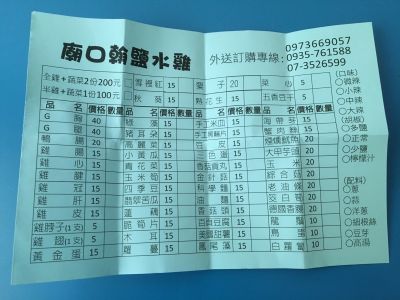 廟口翰鹽水雞
外送訂購專線:
0973669057
0935-761588
07-3526599
全雞+蔬菜2份200元□
半雞+蔬菜1份100元□
雪裡紅 15
秋葵 15
栗子 20
熟花生 15
菜心 5
五香豆干 5
品名 價格 數量 品名 價格 數量 品名 價格 數量 品名 價格 數量
G胸 40 海藻 15 手工米血 15 海帶芽 15
G腿 40 豬耳朵 15 手工黑輪片 15 蟹味絲 15
鴨腸 20 高麗菜 15 竹皮 15 煙燻魷魚 20
雞腸 15 小黃瓜 15 三色蛋 15 大甲芋頭 20
雞心 15 青花菜 15 香菇貢丸 15 玉米 20
雞腱 15 玉米筍 15 金針菇 15 綜合菇 20
雞冠 15 四季豆 15 科學麵 15 老油條 20
雞肝 15 翡翠苦瓜 15 油麵 15 茭白筍 20
雞皮 15 蓮藕 15 香菇頭 15 德國香腸 20
雞脖子(1支) 5 脆筍片 15 百頁豆腐 15 龍鬚 20
雞翅(1支) 5 木耳 15 美國甜薯 15 鳥蛋 10
黃金蛋 15 蘿蔓 15 鳳尾藻 15 白蘿蔔 10
(口味)
○微辣
○小辣
○中辣
○大辣
(胡椒)
○多鹽
○正常
○少鹽
○檸檬汁
(配料)
○蔥
○蒜
○洋蔥
○細椒絲
○豆芽
○高湯